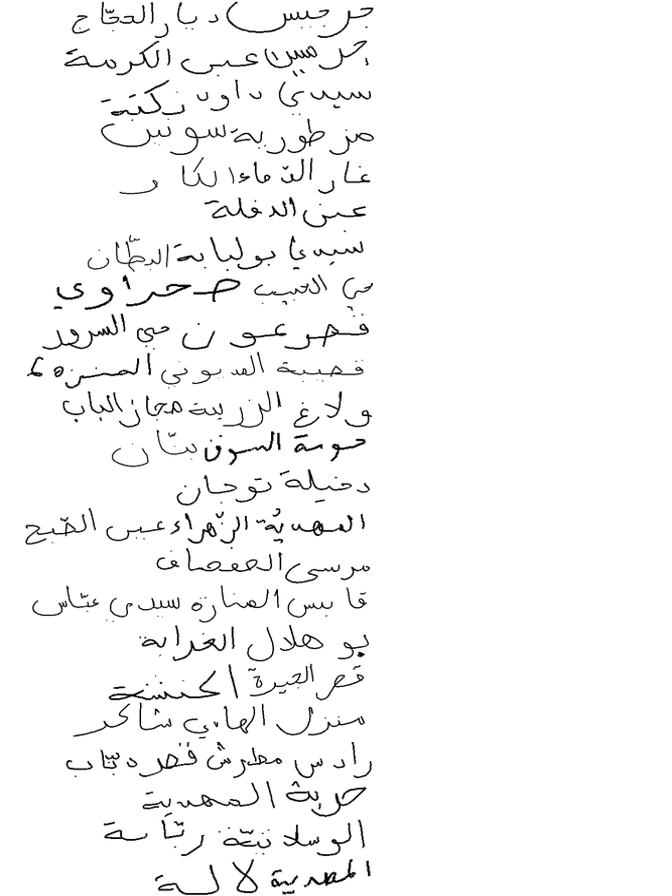 جرجيس ديار الحجّاج
سيدي داود زكتبة
مزطورية سونين
غار الدّماء الكاو
عين الدفلة
سيدي بولبابة البطّان
حي الحبيب صحراوي
فم عون حي السرور
قصيبة المديوني المنزه 6
ولاغ الزريبة مجاز الباب
حومة السوق بنّان
دخيلة توجان
المهديّة الزّهراء عين الضّبح
مرسى الصفصاف
قابس المنارة سيدي عبّاس
بو هلال الغرابة
قصر الجيرة الخنشة
منزل الهادي شاكر
رادس مطرش قصر دبّاب
حربة المهدية
الوسلاتيّة ربّاسة
المصرية لالة